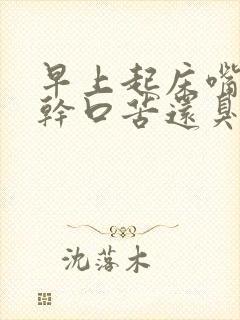 早上起床嘴
幹口苦還臭
沈落木